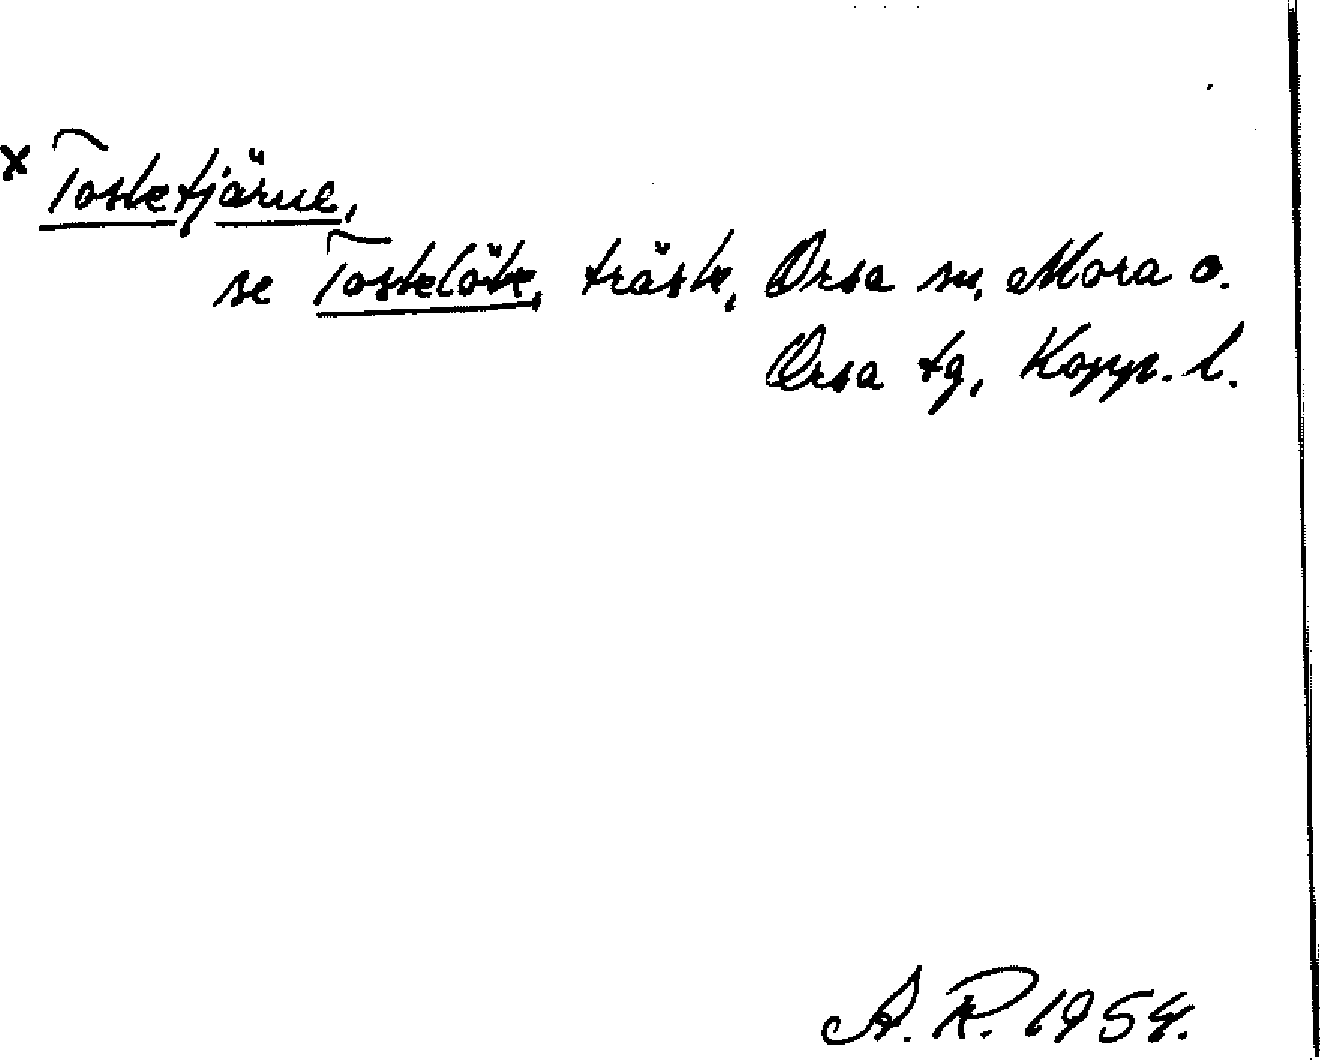 x Tosketjärne,
se Toskelöke, träsk, Orsa sn, Mora o.
Orsa tg, Kopp. l.
A. R. 1954.